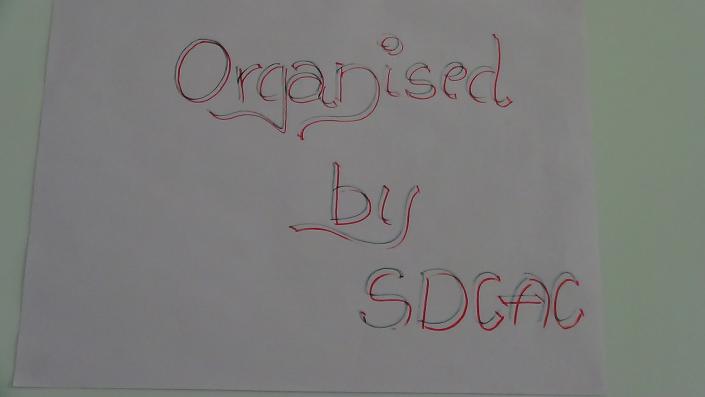 Organised
by
SDCAC